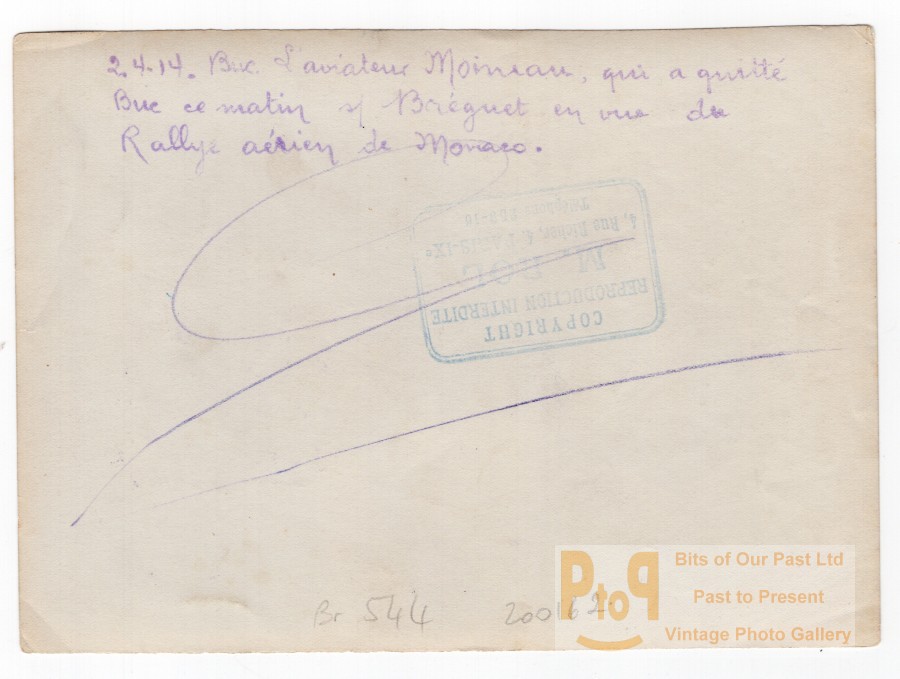 2.4.14. Buc. L'aviateur Moineau, qui a quitté
Buc ce matin s/ Bréguet en vue du
Rallye aérien de Monaco.
COPYRIGHT
REPRODUCTION INTERDITE
M. ROL
4, Rue Richer, 4, PARIS-IXe
Téléphone
Br 544 200162
PtoP
Bits of Our Past Ltd
Past to Present
Vintage Photo Gallery